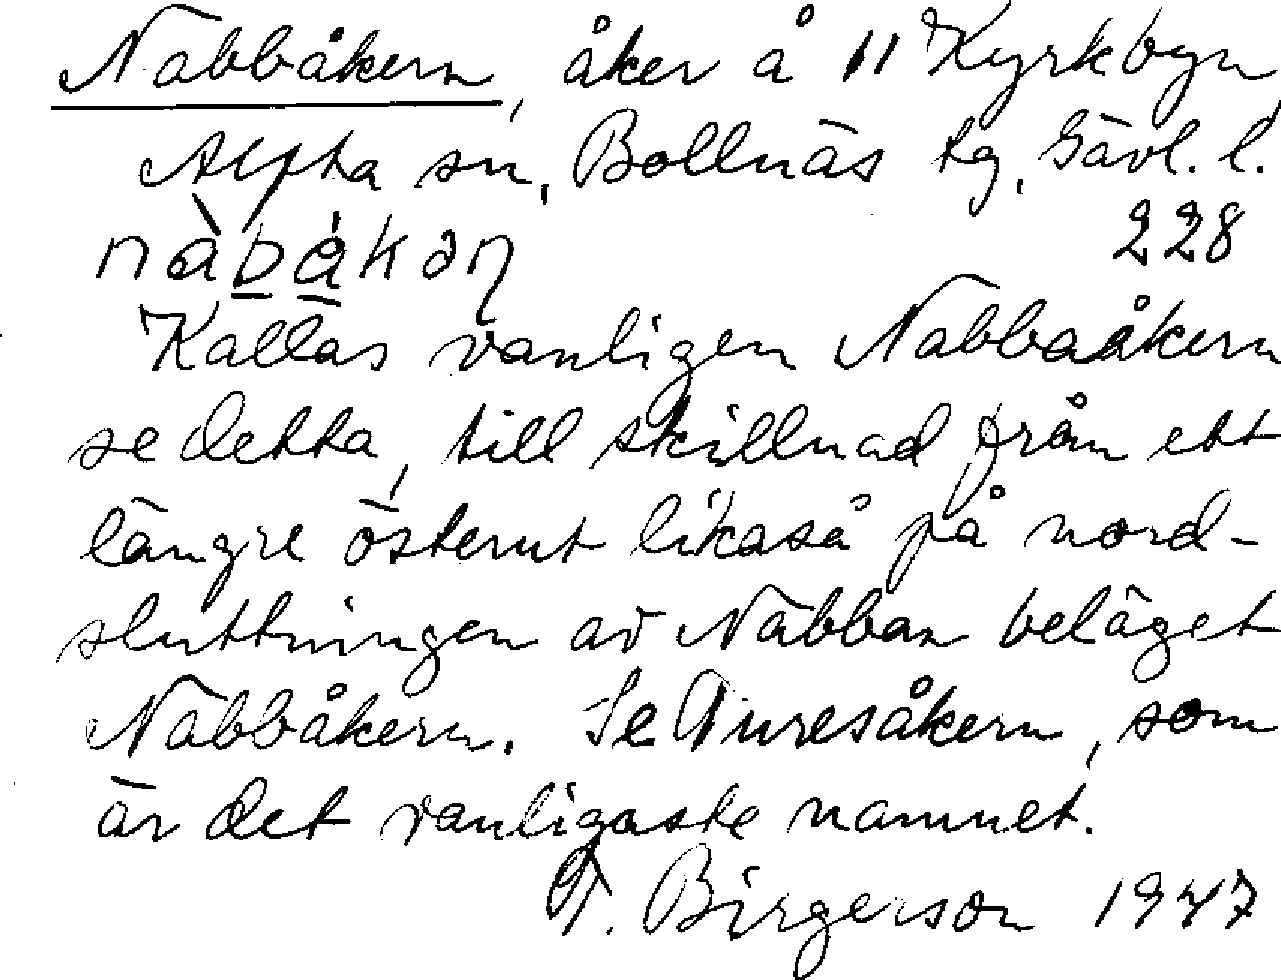 Nabbåkern, åker å 11 Kyrkbyn
Alfta sn, Bollnäs tg, Gävl. l.
228
Kallas vanligen Nabbaåkern
se detta, till skillnad från ett
längre österut likaså på nord-
sluttningen av Nabban beläget
Nabbåkern. Se Turesåkern, som
är det vanligaste namnet.
T. Birgerson 1947